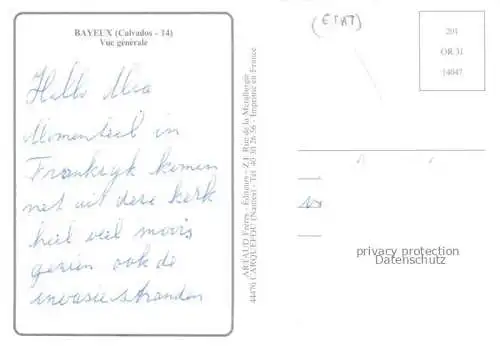 BAYEUX (Calvados - 14)
Vue générale
Hallo Mia
Momenteel in
Frankryk komen
net uit deze kerk
heel veel moois
gezien ook de
invasie stranden
ARTAUD Frères - Éditeurs - Z.I. Rue de la Métallurgie
44470 CARQUEFOU (Nantes) - Tél. 40 30 26 56 - Imprimé en France
201
OR 31
14047
privacy protection
Datenschutz